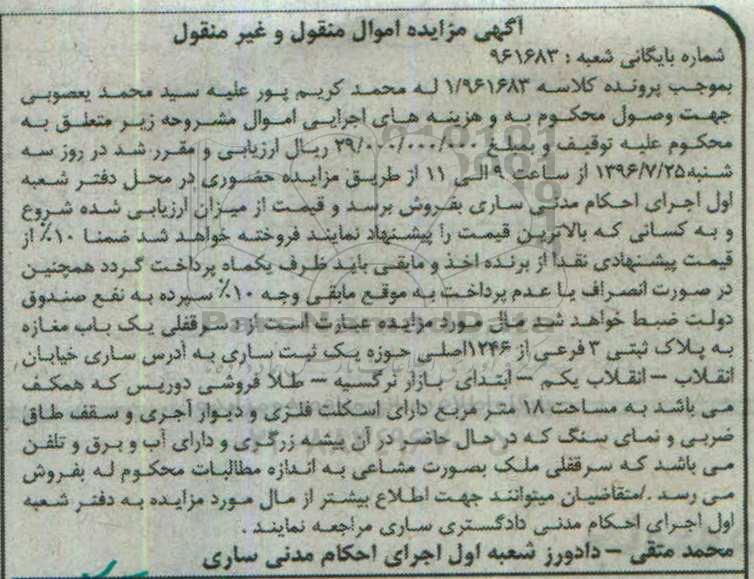 آگهی مزایده اموال منقول و غیر منقول
شماره بایگانی شعبه : ۹۶۱۶۸۳
بموجب پرونده کلاسه ۱/۹۶۱۶۸۳ له محمد کریم پور علیه سید محمد یعصوبی
جهت وصول محکوم به و هزینه های اجرایی اموال مشروحه زیر متعلق به
محکوم علیه توقیف و بمبلغ ۲۹/۰۰۰/۰۰۰/۰۰۰ ریال ارزیابی و مقرر شد در روز سه
شنبه۱۳۹۶/۷/۲۵ از ساعت ۹ الی ۱۱ از طریق مزایده حضوری در محل دفتر شعبه
اول اجرای احکام مدنی ساری بفروش برسد و قیمت از میزان ارزیابی شده شروع
و به کسانی که بالاترین قیمت را پیشنهاد نمایند فروخته خواهد شد ضمنا ۱۰٪ از
قیمت پیشنهادی نقدا از برنده اخذ و مابقی باید ظرف یکماه پرداخت گردد همچنین
در صورت انصراف یا عدم پرداخت به موقع مابقی وجه ۱۰٪ سپرده به نفع صندوق
دولت ضبط خواهد شد مال مورد مزایده عبارت است از : سرقفلی یک باب مغازه
به پلاک ثبتی ۳ فرعی از ۱۲۴۶اصلی حوزه یک ثبت ساری به آدرس ساری خیابان
انقلاب – انقلاب یکم – ابتدای بازار نرگسیه – طلا فروشی دوریس که همکف
می باشد به مساحت ۱۸ متر مربع دارای اسکلت فلزی و دیوار آجری و سقف طاق
ضربی و نمای سنگ که در حال حاضر در آن پیشه زرگری و دارای آب و برق و تلفن
می باشد که سرقفلی ملک بصورت مشاعی به اندازه مطالبات محکوم له بفروش
می رسد ./متقاضیان میتوانند جهت اطلاع بیشتر از مال مورد مزایده به دفتر شعبه
اول اجرای احکام مدنی دادگستری ساری مراجعه نمایند .
محمد متقی – دادورز شعبه اول اجرای احکام مدنی ساری